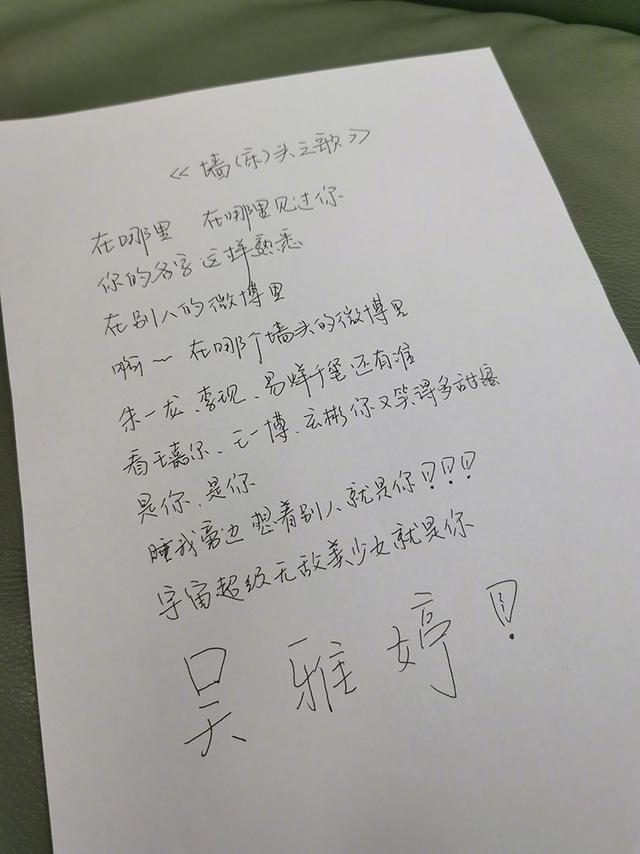 《墙(床)头之歌》
在哪里 在哪里见过你
你的名字这样熟悉
在别人的微博里
啊~在哪个墙头的微博里
朱一龙、李现、易烊千玺还有谁
看王嘉尔、王一博、玄彬你又笑得多甜蜜
是你、是你
睡我旁边想着别人就是你！！！
宇宙超级无敌美少女就是你
吴雅婷！